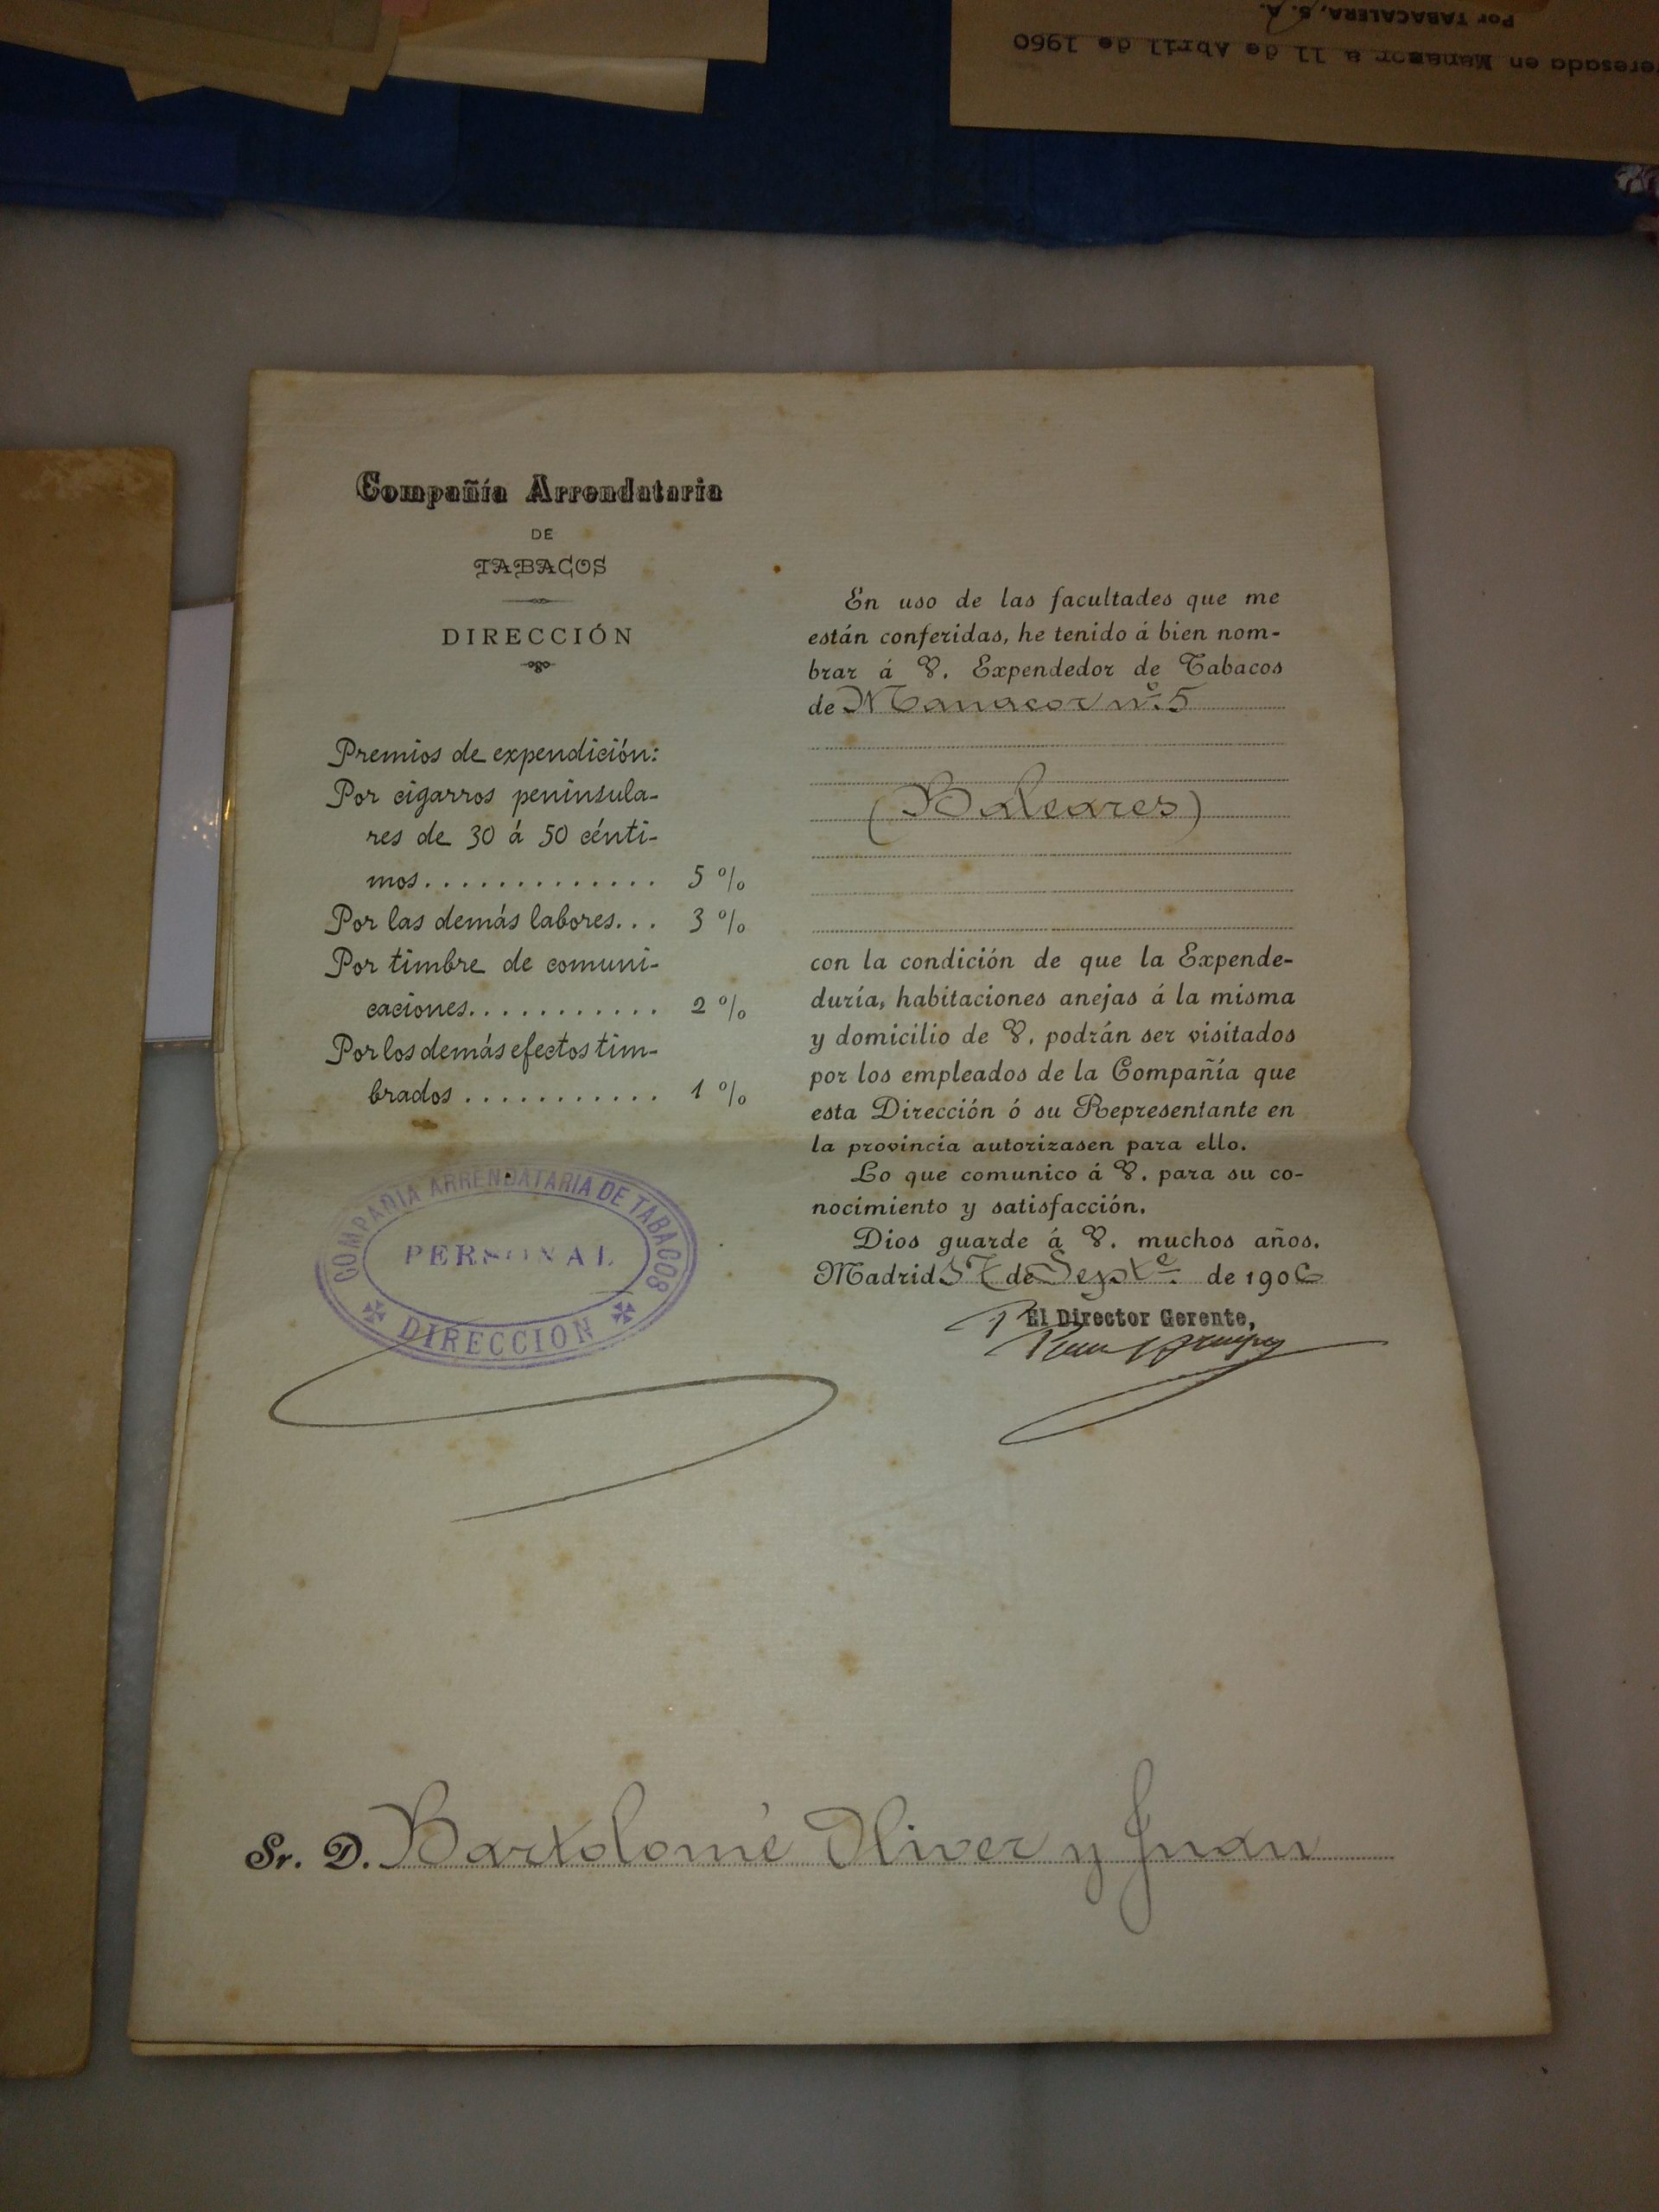 Por TABACALERA, S. A.
eresada en Manacor a 11 de Abril de 1960
Compañía Arrendataria
DE
TABACOS
DIRECCIÓN
Premios de expendición:
Por cigarros peninsula-
res de 30 á 50 cénti-
mos............. 5 %
Por las demás labores... 3 %
Por timbre de comuni-
caciones........... 2 %
Por los demás efectos tim-
brados ........... 1 %
COMPAÑIA ARRENDATARIA DE TABACOS
PERSONAL
DIRECCION
En uso de las facultades que me
están conferidas, he tenido á bien nom-
brar á V. Expendedor de Tabacos
de Manacor nº. 5
(Baleares)
con la condición de que la Expende-
duría, habitaciones anejas á la misma
y domicilio de V. podrán ser visitados
por los empleados de la Compañía que
esta Dirección ó su Representante en
la provincia autorizasen para ello.
Lo que comunico á V. para su co-
nocimiento y satisfacción.
Dios guarde á V. muchos años.
Madrid de Septe. de 190
El Director Gerente,
Sr. D. Bartolomé Oliver y Juan